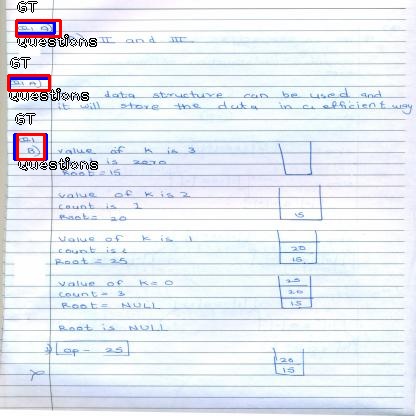 GT
Questions
II and III
GT
Questions
data structure can be used and
it will store the data in a efficient way
GT
B) value of k is 3
is zero
Questions
Root = 15
value of k is 2
count is 1
Root = 20
15
value of k is 1
count is 2
Root = 25
20
15
value of k = 0
count = 3
Root = NULL
25
20
15
Root is NULL
op - 25
20
15